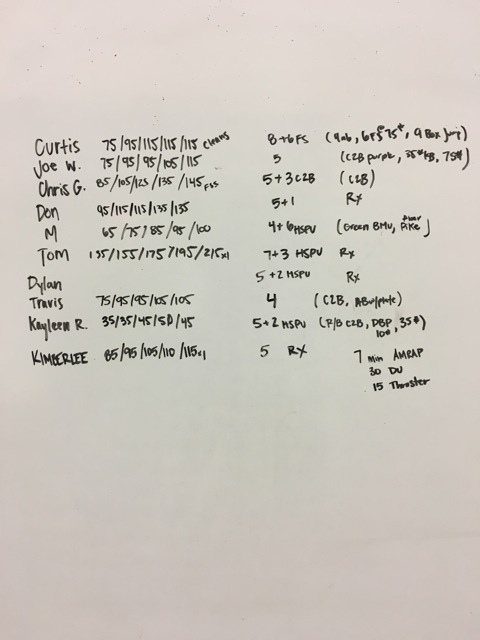 Curtis 75/95/115/115/115 cleans 8+6FS (9ab, 6FS@75#, 9 Box jump)
Joe W. 75/95/95/105/115 5 (C2B purple, 35#KB, 75#)
Chris G. 85/105/125/135/145 5+3 C2B (C2B)
Don 95/115/115/135/135 5+1 Rx
M 65/75/85/95/100 4+6 HSPU (Green BMU, Pike)
Tom 135/155/175/195/215x1 7+3 HSPU Rx
Dylan 5+2 HSPU Rx
Travis 75/95/95/105/105 4 (C2B, )
Kayleen R. 35/35/45/50/45 5+2 HSPU (P/B C2B, DBP 10#, 35#)
KIMBERLEE 85/95/105/110/115x1 5 RX
7 min AMRAP
30 DU
15 Thruster